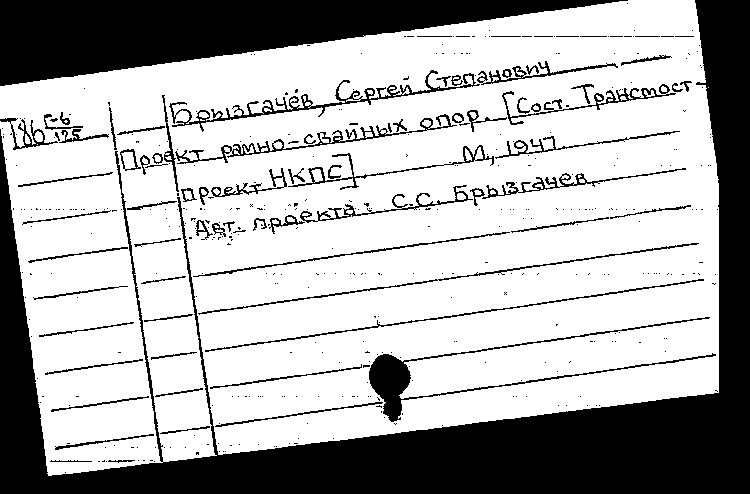 Т86 Г-6/125
Брызгачёв, Сергей Степанович
Проект рамно-свайных опор. [Сост. Трансмост-
проект НКПС]. М., 1947
Авт. проекта: С.С. Брызгачев.